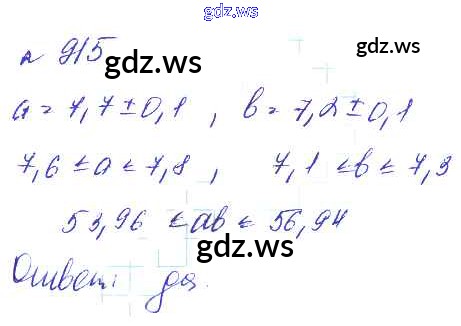 gdz.ws
№ 915
gdz.ws
gdz.ws
a = 7,7 ± 0,1 , b = 7,2 ± 0,1
7,6 ≤ a ≤ 7,8 , 7,1 ≤ b ≤ 7,3
53,96 ≤ ab ≤ 56,94
gdz.ws
Ответ: да.
gdz.ws